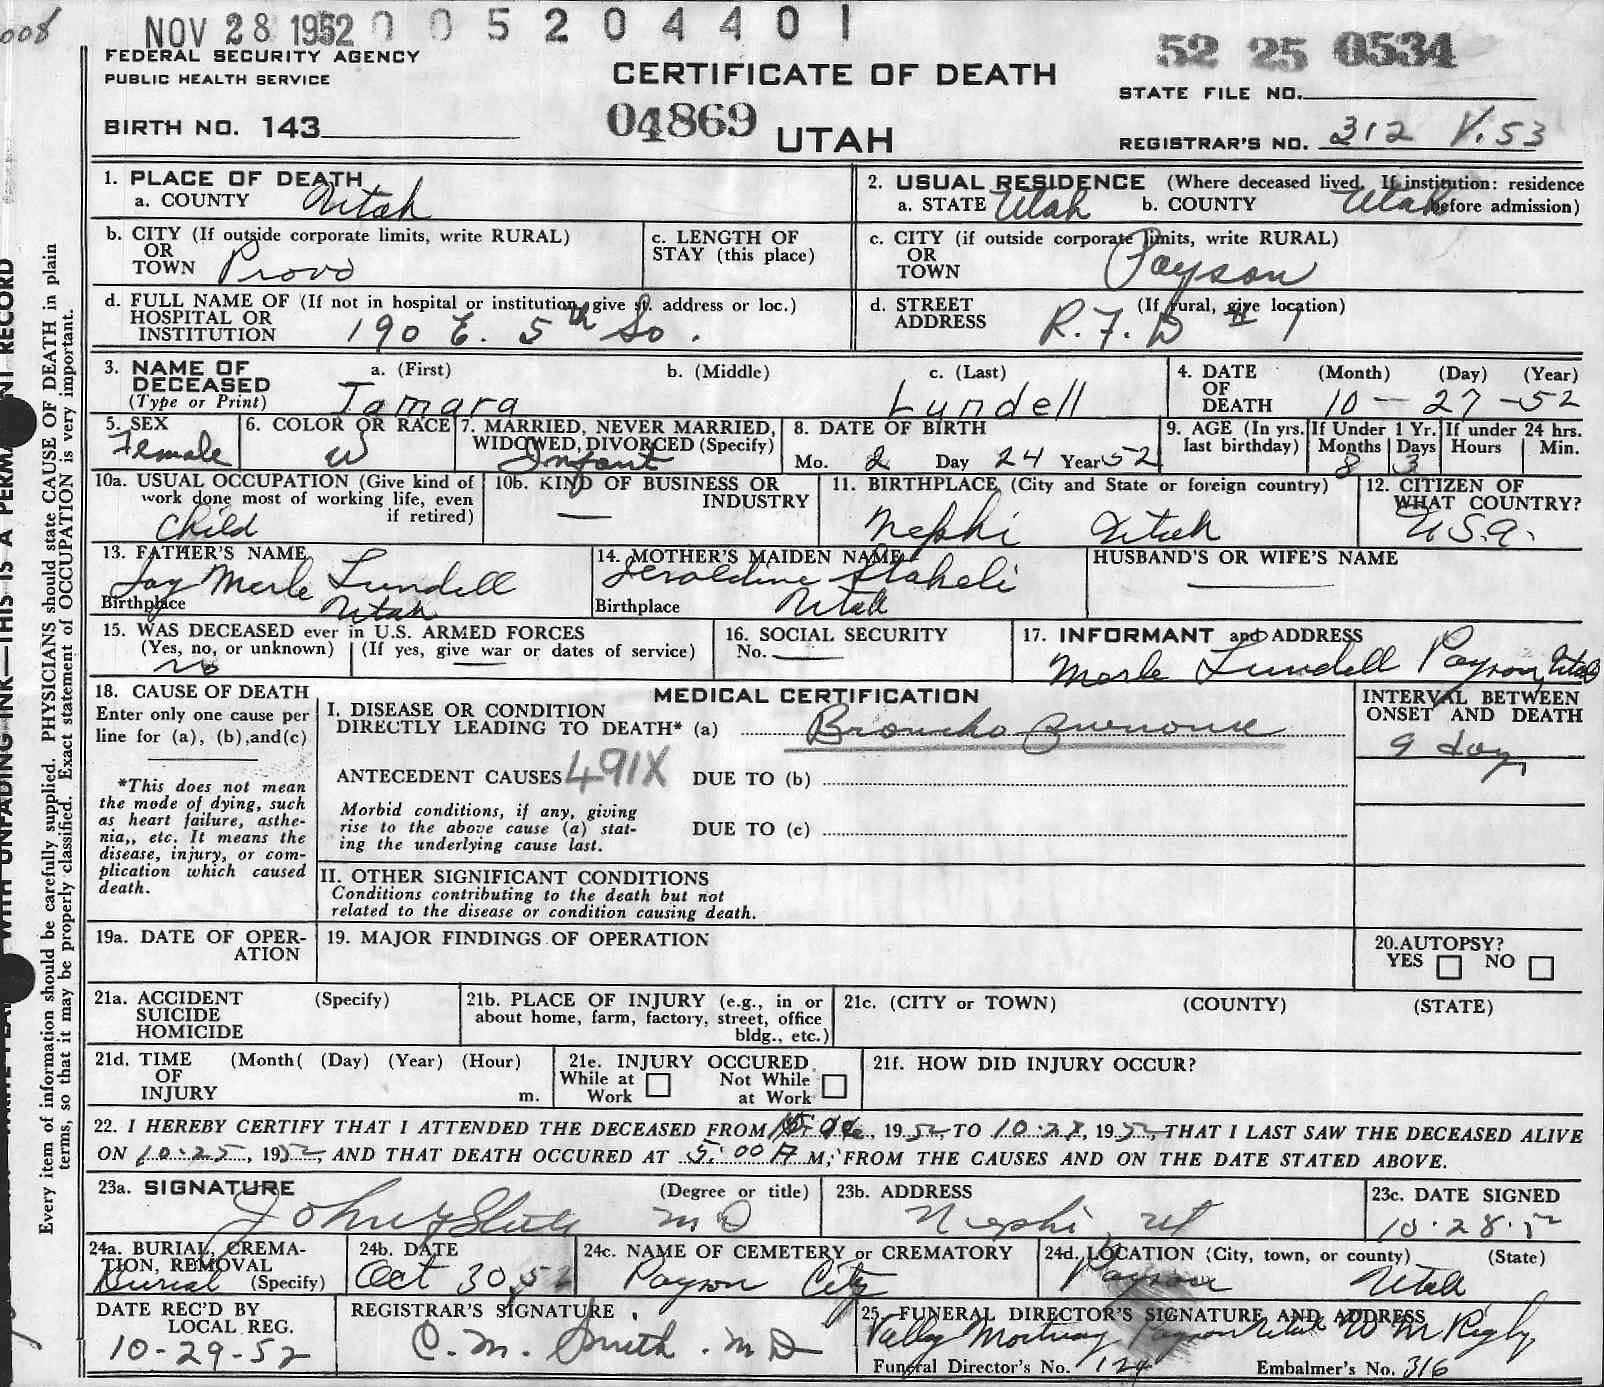 008
NOV 28 1952 0 0 5 2 0 4 4 0 1
52 25 0534
FEDERAL SECURITY AGENCY
PUBLIC HEALTH SERVICE
CERTIFICATE OF DEATH
STATE FILE NO.
BIRTH NO. 143
04869
UTAH
REGISTRAR'S NO. 312 V.53
1. PLACE OF DEATH
a. COUNTY Utah
2. USUAL RESIDENCE (Where deceased lived. If institution: residence before admission)
a. STATE Utah b. COUNTY Utah
b. CITY (If outside corporate limits, write RURAL)
OR
TOWN Provo
c. LENGTH OF
STAY (this place)
c. CITY (if outside corporate limits, write RURAL)
OR
TOWN Payson
d. FULL NAME OF (If not in hospital or institution, give st. address or loc.)
HOSPITAL OR
INSTITUTION 190 E. 5th So.
d. STREET (If rural, give location)
ADDRESS R.F.D # 1
3. NAME OF
DECEASED
(Type or Print)
a. (First) b. (Middle) c. (Last)
Tamara Lundell
4. DATE (Month) (Day) (Year)
OF
DEATH 10 - 27 - 52
5. SEX
Female
6. COLOR OR RACE
W
7. MARRIED, NEVER MARRIED,
WIDOWED, DIVORCED (Specify)
Infant
8. DATE OF BIRTH
Mo. 2 Day 24 Year 52
9. AGE (In yrs.
last birthday)
If Under 1 Yr.
Months Days
8 3
If under 24 hrs.
Hours Min.
10a. USUAL OCCUPATION (Give kind of
work done most of working life, even
if retired)
Child
10b. KIND OF BUSINESS OR
INDUSTRY
—
11. BIRTHPLACE (City and State or foreign country)
Nephi Utah
12. CITIZEN OF
WHAT COUNTRY?
U.S.A.
13. FATHER'S NAME
Jay Merle Lundell
Birthplace Utah
14. MOTHER'S MAIDEN NAME
Geraldine Staheli
Birthplace Utah
HUSBAND'S OR WIFE'S NAME
—
15. WAS DECEASED ever in U.S. ARMED FORCES
(Yes, no, or unknown) (If yes, give war or dates of service)
No —
16. SOCIAL SECURITY
No. —
17. INFORMANT and ADDRESS
Merle Lundell Payson, Utah
18. CAUSE OF DEATH
Enter only one cause per
line for (a), (b), and (c)
*This does not mean
the mode of dying, such
as heart failure, asthe-
nia,, etc. It means the
disease, injury, or com-
plication which caused
death.
MEDICAL CERTIFICATION
I. DISEASE OR CONDITION
DIRECTLY LEADING TO DEATH* (a) Broncho
INTERVAL BETWEEN
ONSET AND DEATH
9 day
ANTECEDENT CAUSES 491X DUE TO (b)
Morbid conditions, if any, giving
rise to the above cause (a) stat-
ing the underlying cause last.
DUE TO (c)
II. OTHER SIGNIFICANT CONDITIONS
Conditions contributing to the death but not
related to the disease or condition causing death.
19a. DATE OF OPER-
ATION
19. MAJOR FINDINGS OF OPERATION
20. AUTOPSY?
YES NO
21a. ACCIDENT (Specify)
SUICIDE
HOMICIDE
21b. PLACE OF INJURY (e.g., in or
about home, farm, factory, street, office
bldg., etc.)
21c. (CITY or TOWN) (COUNTY) (STATE)
21d. TIME (Month( (Day) (Year) (Hour)
OF
INJURY m.
21e. INJURY OCCURED
While at Work Not While at Work
21f. HOW DID INJURY OCCUR?
22. I HEREBY CERTIFY THAT I ATTENDED THE DECEASED FROM , 1952, TO 10.27, 1952, THAT I LAST SAW THE DECEASED ALIVE
ON 10.25, 1952, AND THAT DEATH OCCURED AT 5:00 A M; FROM THE CAUSES AND ON THE DATE STATED ABOVE.
23a. SIGNATURE (Degree or title)
John MD
23b. ADDRESS
Nephi, Ut
23c. DATE SIGNED
10.28.52
24a. BURIAL, CREMA-
TION, REMOVAL
Burial (Specify)
24b. DATE
Oct 30, 52
24c. NAME OF CEMETERY or CREMATORY
Payson City
24d. LOCATION (City, town, or county) (State)
Payson Utah
DATE REC'D BY
LOCAL REG.
10-29-52
REGISTRAR'S SIGNATURE
C. M. Smith. MD
25. FUNERAL DIRECTOR'S SIGNATURE AND ADDRESS
Valley Mortuary Payson Utah W M Rigby
Funeral Director's No. 124 Embalmer's No. 316
Every item of information should be carefully supplied. PHYSICIANS should state CAUSE OF DEATH in plain
terms, so that it may be properly classified. Exact statement of OCCUPATION is very important.
WITH UNFADING INK—THIS IS A PERMANENT RECORD